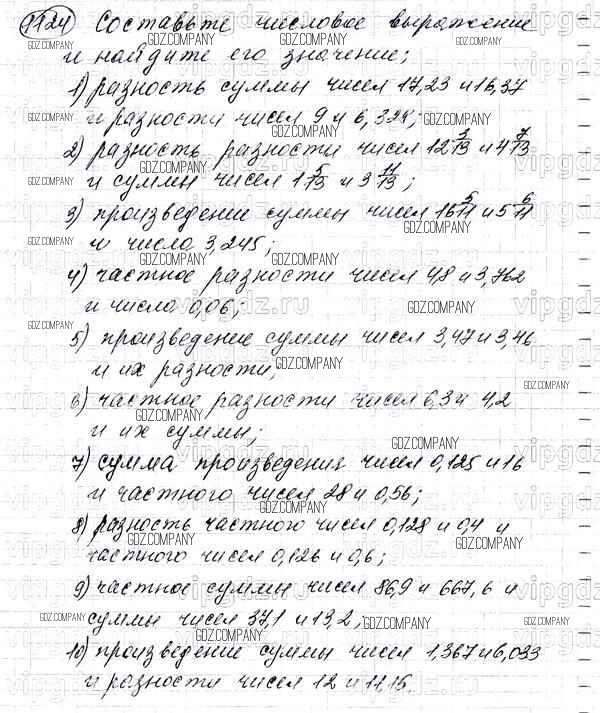 1124 Составьте числовое выражение
и найдите его значение;
1) разность суммы чисел 17,23 и 16,37
и разности чисел 9 и 6,328;
2) разность разности чисел 12 3/13 и 4 7/13
и суммы чисел 1 5/13 и 3 11/13;
3) произведение суммы чисел 16 5/11 и 5 6/11
и числа 3,245;
4) частное разности чисел 48 и 3,762
и числа 0,06;
5) произведение суммы чисел 3,47 и 3,46
и их разности;
6) частное разности чисел 6,3 и 4,2
и их суммы;
7) сумма произведения чисел 0,125 и 16
и частного чисел 28 и 0,56;
8) разность частного чисел 0,128 и 0,4 и
частного чисел 0,126 и 0,6;
9) частное суммы чисел 86,9 и 667,6 и
суммы чисел 37,1 и 13,2;
10) произведение суммы чисел 1,367 и 6,033
и разности чисел 12 и 11,15.